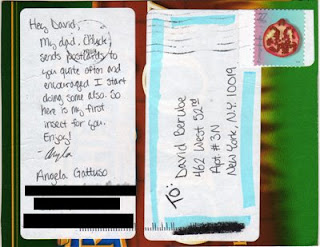 Hey David,
My dad, (Pluck)
sends postcards to
you quite often and
encouraged I start
doing some also. So
here is my first
insect for you.
Enjoy!
- Angela
Angela Gattuso
TO:
David Berube
462 West 52nd
Apt # 3N
New York, N.Y. 10019